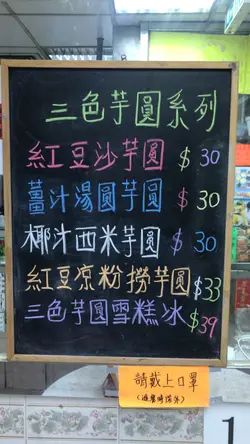 三色芋圓系列
紅豆沙芋圓 $30
薑汁湯圓芋圓 $30
椰汁西米芋圓 $30
紅豆凉粉撈芋圓 $33
三色芋圓雪糕冰 $39
請戴上口罩